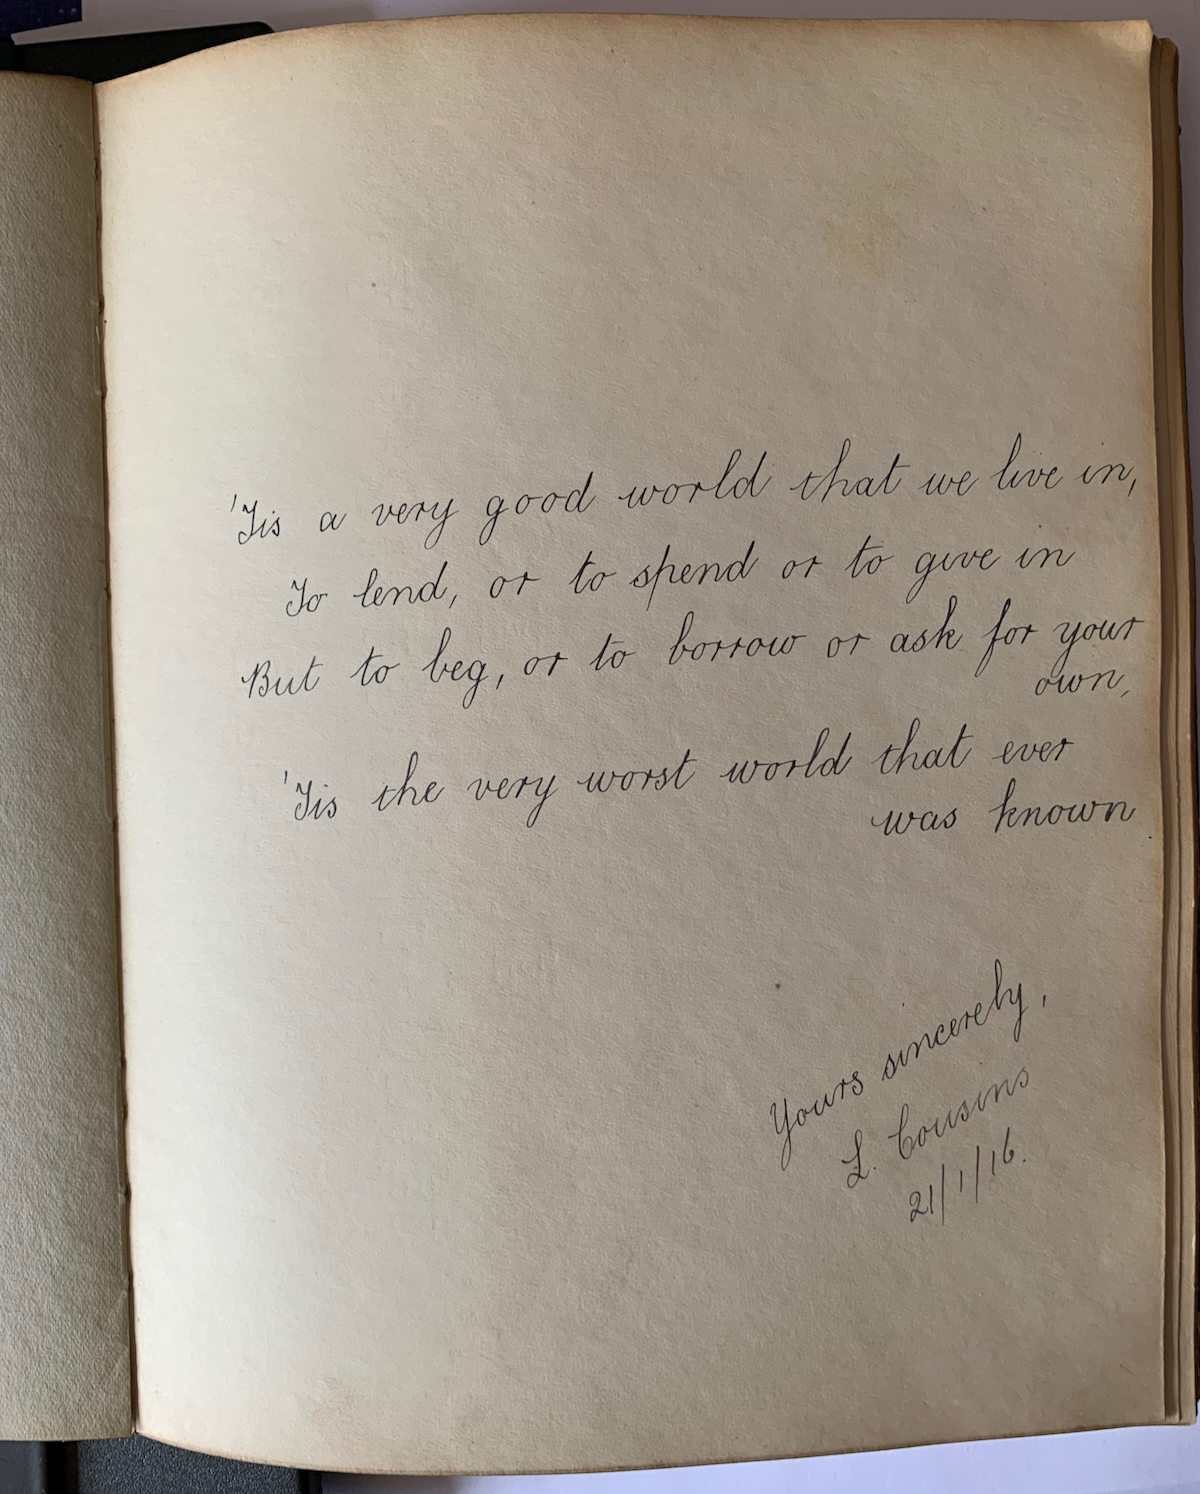 'Tis a very good world that we live in,
To lend, or to spend or to give in
But to beg, or to borrow or ask for your
own,
'Tis the very worst world that ever
was known
Yours sincerely,
L. Cousins
21/1/16.